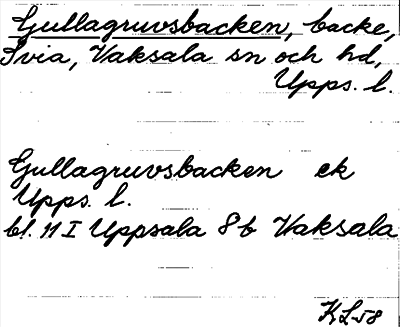 Gullagruvsbacken, backe,
Svia, Vaksala sn och hd,
Upps. l.
Gullagruvsbacken ek
Upps. l.
bl. 11 I Uppsala 8b Vaksala
KL58